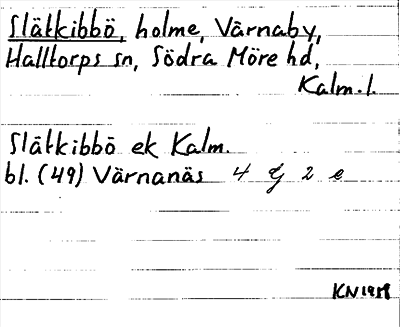 Slätkibbö, holme, Värnaby,
Halltorps sn, Södra Möre hd,
Kalm. l.
Slätkibbö ek Kalm.
bl. (49) Värnanäs 4 G 2 e